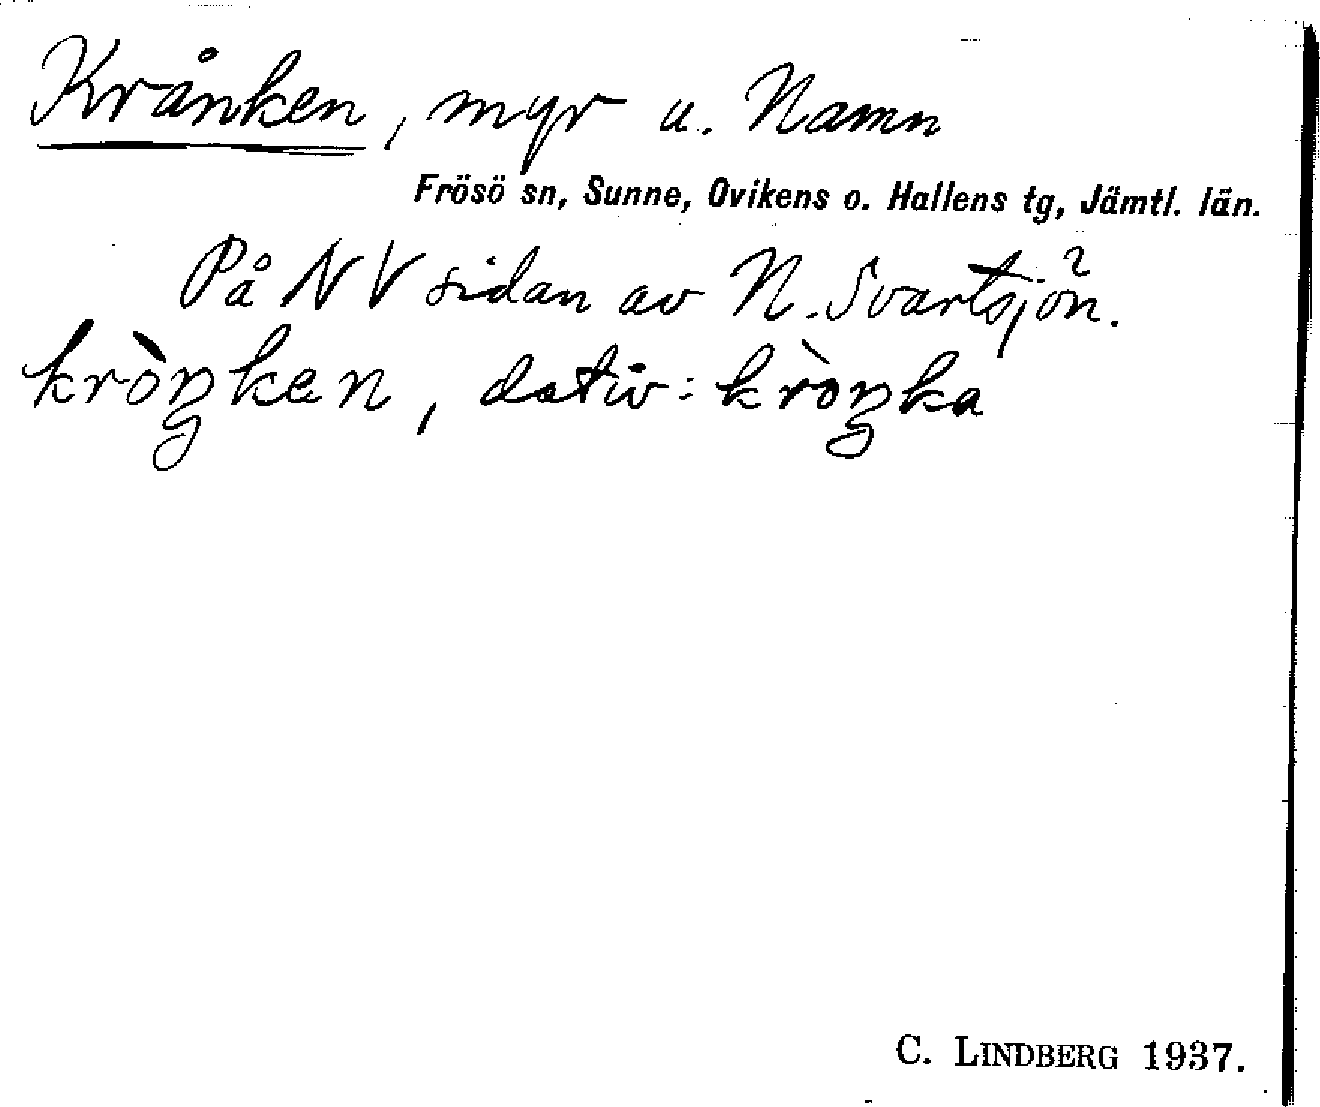 Krånken, myr u. Namn
Frösö sn, Sunne, Ovikens o. Hallens tg, Jämtl. län.
På NV sidan av N. Svartsjön.
kròŋken, dativ: kròŋka
C. LINDBERG 1937.